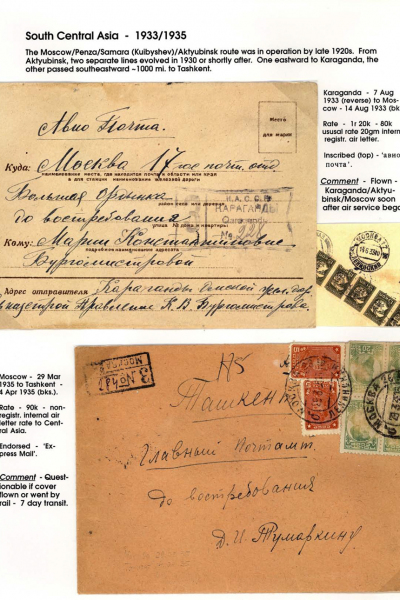 South Central Asia - 1933/1935
The Moscow/Penza/Samara (Kuibyshev)/Aktyubinsk route was in operation by late 1920s. From
Aktyubinsk, two separate lines evolved in 1930 or shortly after. One eastward to Karaganda, the
other passed southeastward ~1000 mi. to Tashkent.
Karaganda - 7 Aug
1933 (reverse) to Mos-
cow - 14 Aug 1933 (bk.)
Rate - 1r 20k - 80k
ususal rate 20gm intern.
registr. air letter.
Inscribed (top) - 'авио
почта'.
Comment - Flown -
Karaganda/Aktyu-
binsk/Moscow soon
after air service began.
Авио Почта.
Место
для марки
Куда: Москва 17 ое почт. отд.
наименование места, где находится почта и области или края
а для станции наименование железной дороги
Большая Ордынка
до востребования
К.А.С.С.Р.
КАРАГАНДА
№ 228
Кому: Марии Константиновне
Бургомистровой
Адрес отправителя Караганды
Moscow - 29 Mar
1935 to Tashkent -
4 Apr 1935 (bks.).
Rate - 90k - non-
registr. internal air
letter rate to Cent-
ral Asia.
Endorsed - 'Ex-
press Mail'.
Comment - Quest-
ionable if cover
flown or went by
rail - 7 day transit.
МОСКВА
Ташкент
Главный Почтамт.
до востребования
Д. И. Тумаркину